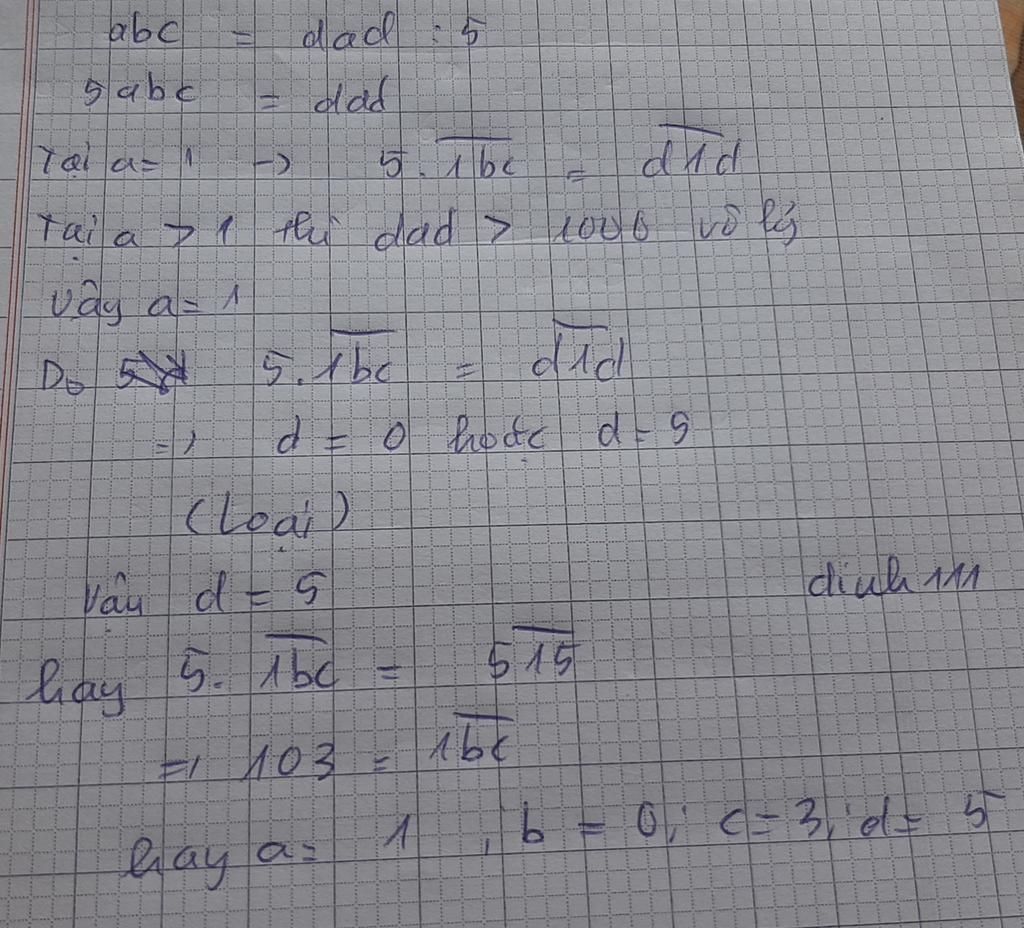 abc = dad : 5
5abc = dad
Tại a = 1 -> 5.1bc = d1d
Tại a > 1 thì dad > 1000 vô lý
Vậy a = 1
Do 5.1bc = d1d
=> d = 0 hoặc d = 5
(Loại)
Vậy d = 5
dinh 111
hay 5.1bc = 515
=> 103 = 1bc
hay a = 1, b = 0; c = 3; d = 5